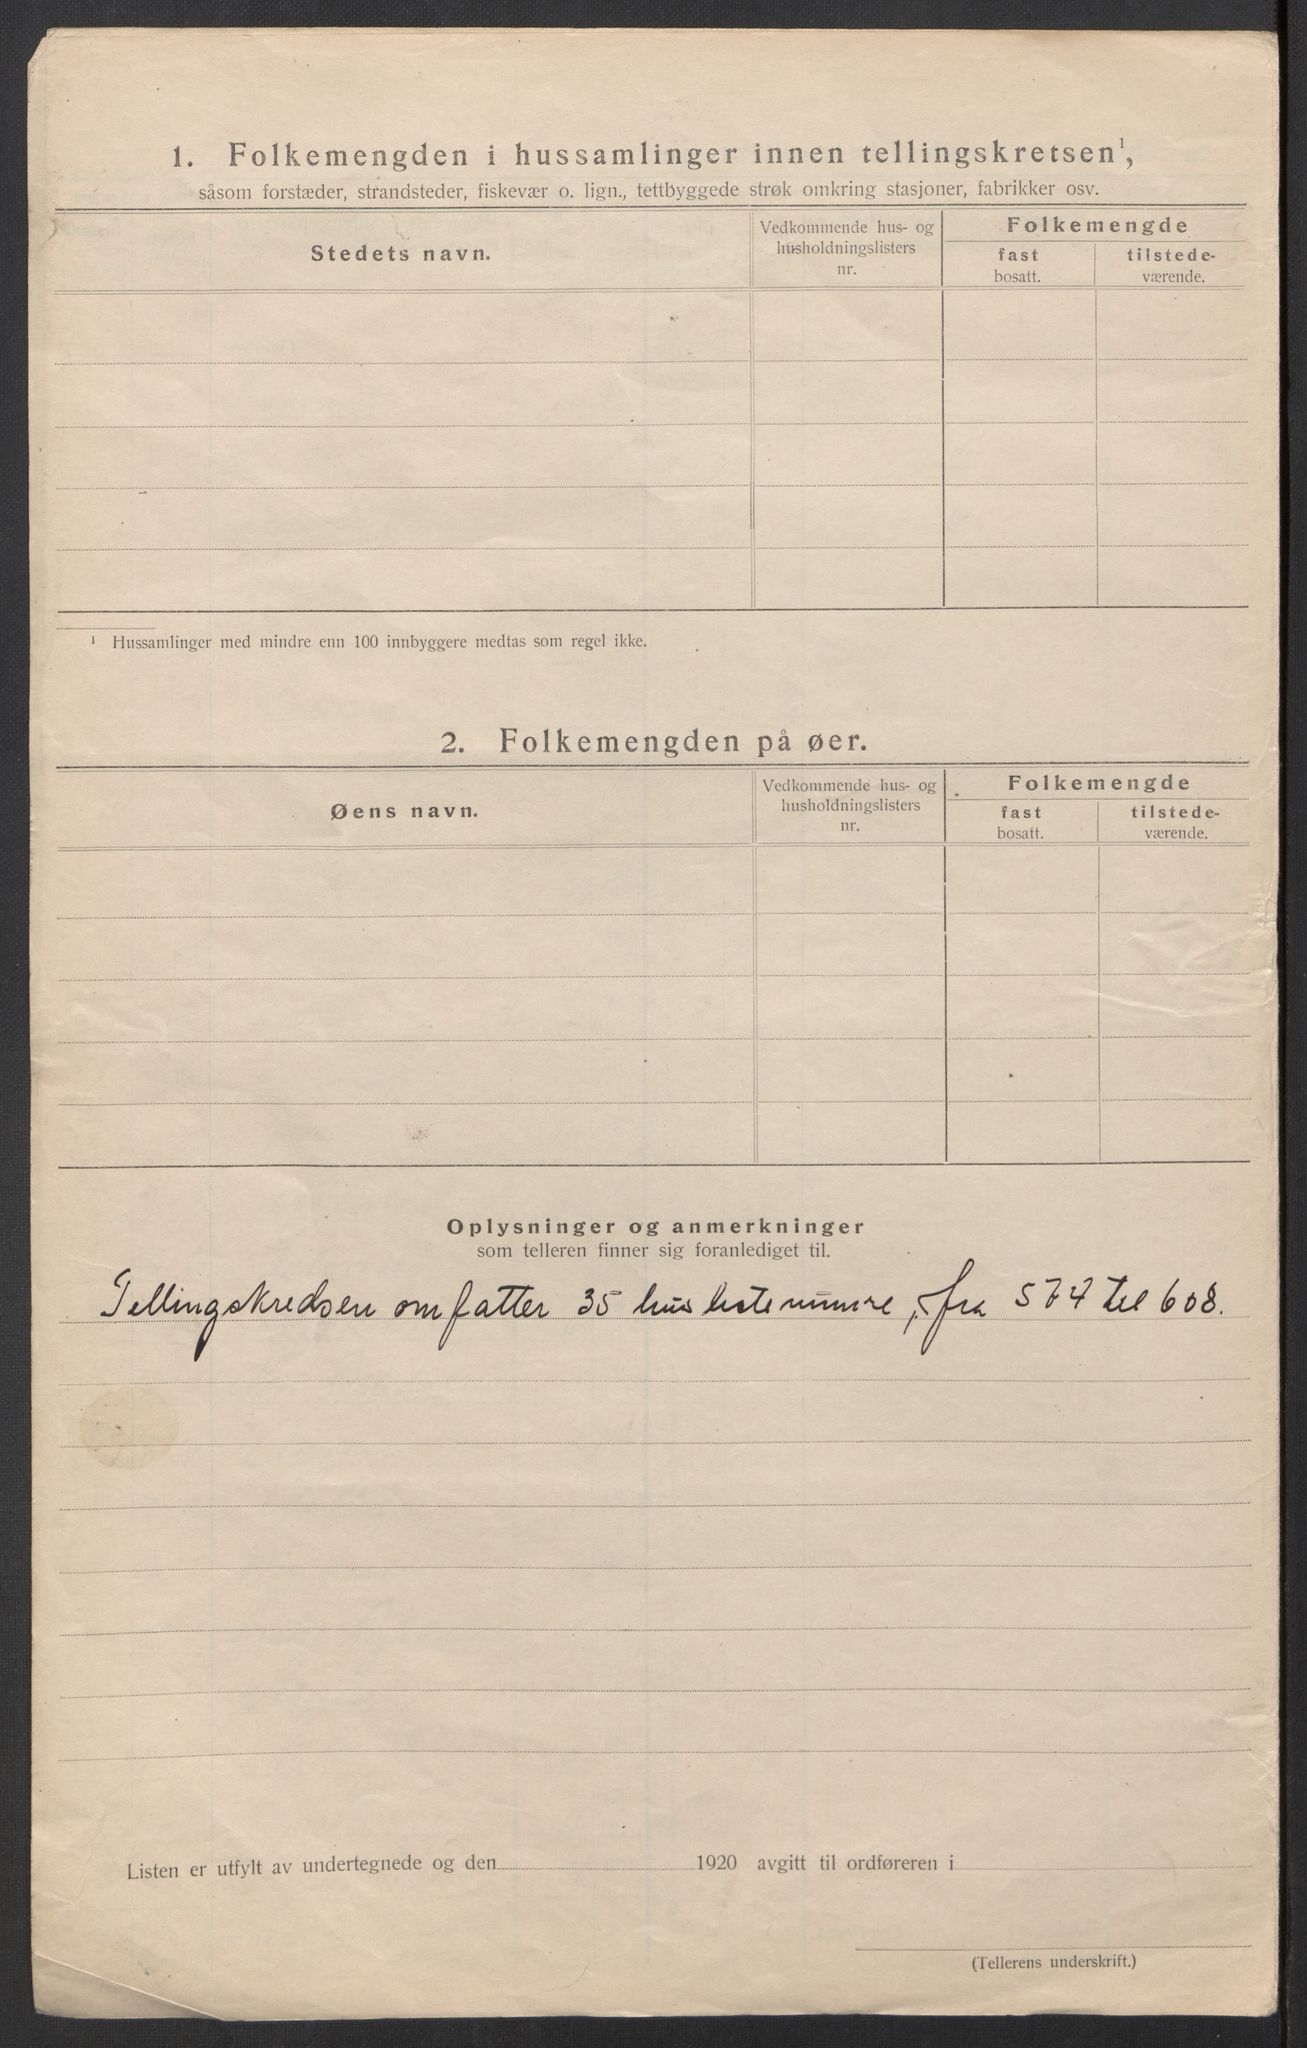 1. Folkemengden i hussamlinger innen tellingskretsen¹,
såsom forstæder, strandsteder, fiskevær o. lign., tettbyggede strøk omkring stasjoner, fabrikker osv.
Stedets navn.
Vedkommende hus- og
husholdningslisters
nr.
Folkemengde
fast
bosatt.
tilstede-
værende.
¹ Hussamlinger med mindre enn 100 innbyggere medtas som regel ikke.
2. Folkemengden på øer.
Øens navn.
Vedkommende hus- og
husholdningslisters
nr.
Folkemengde
fast
bosatt.
tilstede-
værende.
Oplysninger og anmerkninger
som telleren finner sig foranlediget til.
Tellingskredsen omfatter 35 huslistenumre, fra 574 til 608.
Listen er utfylt av undertegnede og den 1920 avgitt til ordføreren i
(Tellerens underskrift.)